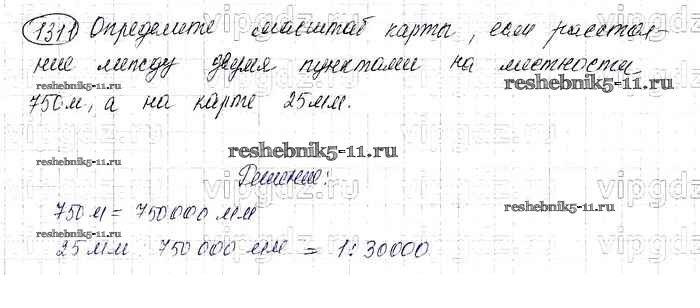 1311 Определите масштаб карты, если расстоя-
ние между двумя пунктами на местности
reshebnik5-11.ru
750м, а на карте 25мм.
reshebnik5-11.ru
reshebnik5-11.ru
reshebnik5-11.ru
Решение:
vipgdz.ru
750м = 750000 мм
reshebnik5-11.ru
reshebnik5-11.ru
25мм 750000 мм = 1:30000